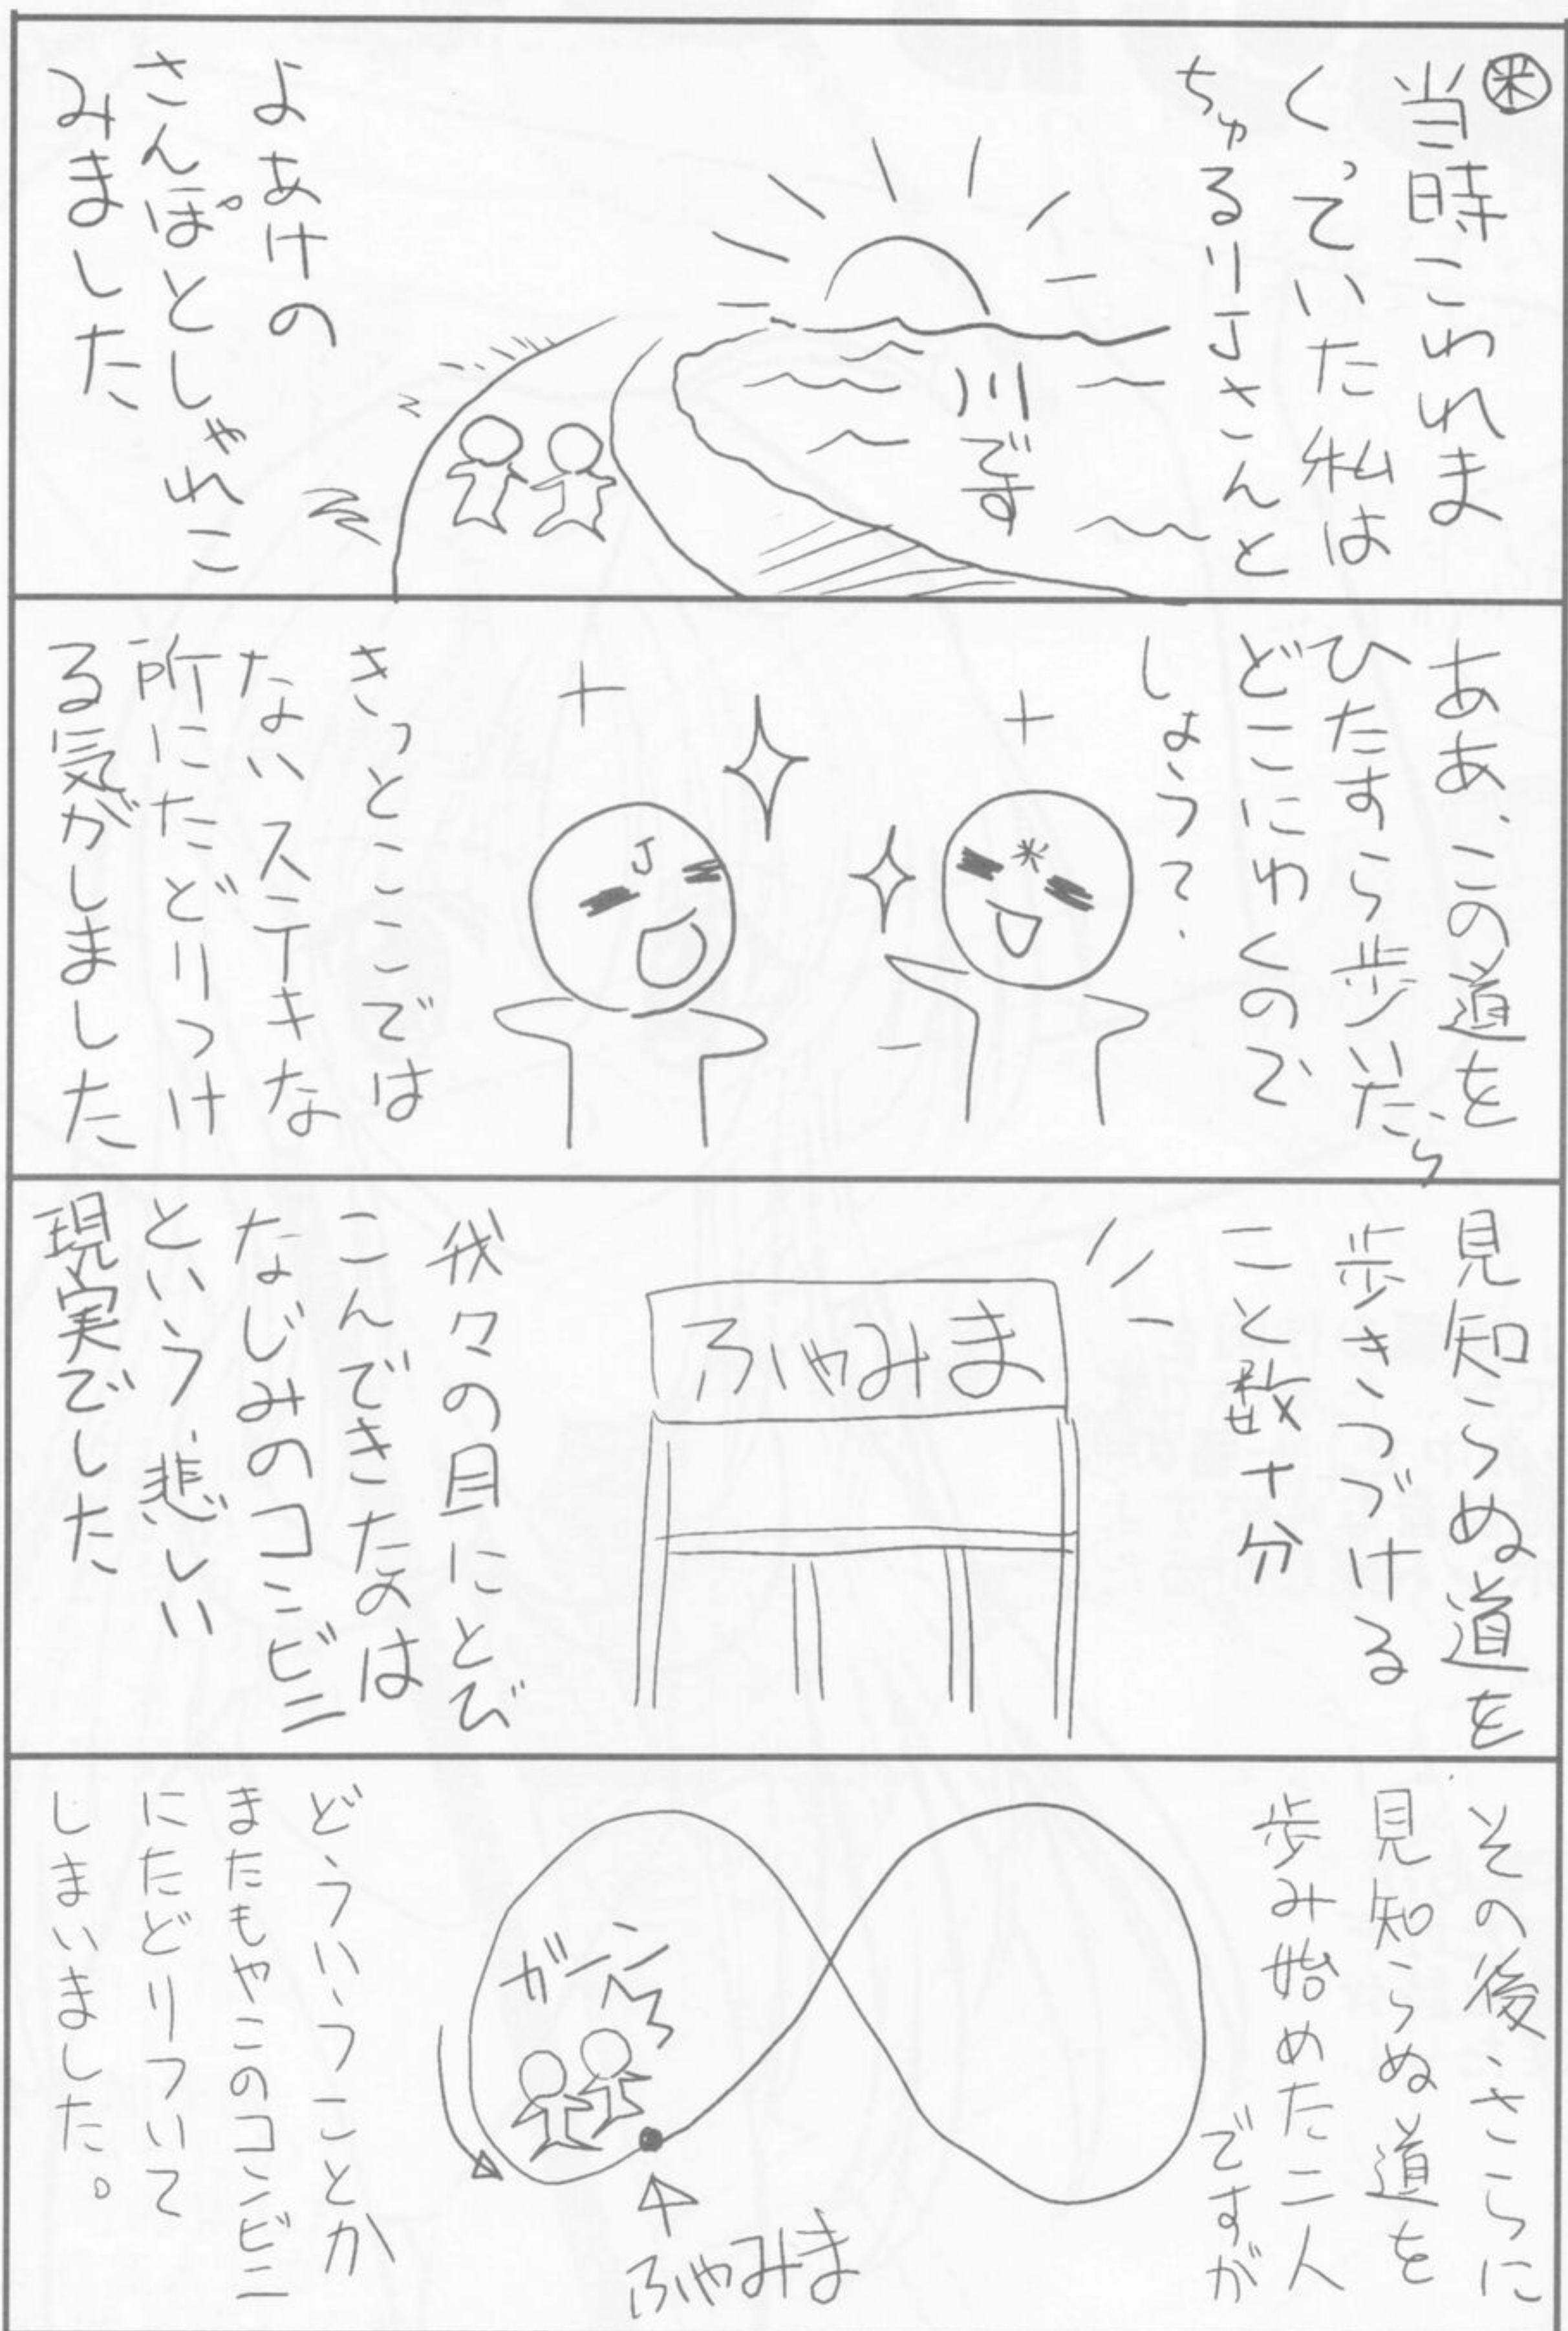 米
当時こわれま
くっていた私は
ちゃるりJさんと
川です
よあけの
さんぽとしゃれこ
みました
ああ、この道を
ひたすら歩いたら、
どこにゆくので
しょうて、
米
J
きっとここでは
ないステキな
所にたどりつけ
る気がしました
見知らぬ道を
歩きつづける
こと数十分
ふゃみま
我々の目にとび
こんできたのは
なじみのコンビニ
という、悲しい
現実でした
その後、さらに
見知らぬ道を
歩み始めた二人
ですが
ガーン
ふゃみま
どういうことか
またもやこのコンビニ
にたどりついて
しまいました。